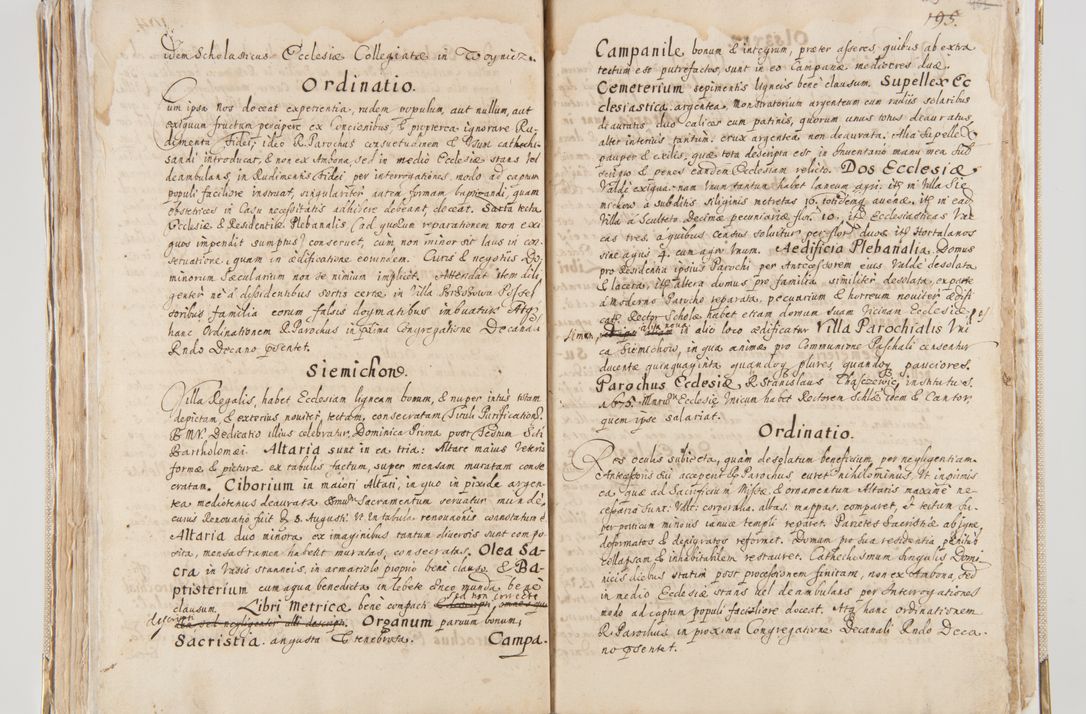 idem Scholasticus Ecclesiæ Collegiatæ in Woynicz.
Ordinatio.
Cum ipsa nos doceat experientia, rudem populum, aut nullum, aut
exiguum fructum percipere ex Concionibus, & propterea ignorare Ru-
dimenta Fidei, ideo R. Parochus consuetudinem & Usum cathechi-
sandi introducat, & non ex Ambona, sed in medio Ecclesiæ stans vel
deambulans, in Rudimentis Fidei per interrogationes, modo ad captum
populi faciliore instruat, singulariter autem formam baptizandi, quam
obstetrices in Casu necessitatis adhibere debeant, doceat. Sarta tecta
Ecclesiæ & Residentiæ Plebanalis (ad quorum reparationem non exi
guos impendit sumptus) conservet, cum non minor sit laus in con-
servatione, quam in ædificatione eorundem. Curis & negotiis Do-
minorum Sæcularium non se nimium implicet. Attendat item dili-
genter ne à dissidentibus sortis certæ in Villa
soribus familia eorum falsis dogmatibus imbuatur. Atq;
hanc Ordinationem R. Parochus in proxima Congregatione Decana-
Rndo Decano præsentet.
Siemichow.
Villa Regalis, habet Ecclesiam ligneam bonam, & nuper intus totam
depictam, & exterius noviter tectam, consecratam Tituli Purificationis
B. M. V. Dedicatio illius celebratur Dominica Prima post Festum Scti
Bartholomæi. Altaria sunt in ea tria: Altare maius Veteris
formæ & picturæ ex tabulis factum, super mensam muratam conse
cratam. Ciborium in maiori Altari, in quo in pixide argen-
tea mediotenus deaurata Ssmum Sacramentum servatur munde,
cuius Renovatio fuit 8. Augusti, Ut in tabula renovationis connotatum e.
Altaria duo minora, ex imaginibus tantum diversis sunt compo-
sita, mensas tamen habent muratas, consecratas. Olea Sa-
cra in Vasis stanneis, in armariolo proprio bene clauso. & Ba-
ptisterium cum aqua benedicta in lebete æneo munda bene
clausum. Libri Metricæ bene compacti sed non correcte
descripti Organum parvum bonum,
Sacristia angusta & tenebrosa. Campa-
195.
Campanile bonum & integrum, præter asseres, quibus ab extra
tectum est putrefactos, sunt in eo Campanæ mediocres duæ.
Cemeterium sepimentis ligneis bene clausum. Supellex Ec
clesiastica argentea, Monstratorium argenteum cum radiis solaribus
deauratis, duo calices cum patinis, quorum unus totus deauratus,
alter interius tantum: crux argentea non deaurata. Alia Supellex
pauper & exilis, quæ tota descripta est in Inventario manu mea sub-
scripto & penes eandem Ecclesiam relicto. Dos Ecclesiæ
Valde exigua: nam Unum tantum habet laneum agri: itē in Villa Sie
michow à Subditis Siliginis metretas 16. totidemq; avenæ, itē in ead
Villa à Sculteto Decimæ pecuniariæ flor. 10, itē Ecclesiasticas Vac
cas tres, à quibus Census solvitur per flor. duos itē Hortulanos
sine agris 4. cum agro Unum. Aedificia Plebanalia. Domus
pro Residentia ipsius Parochi per Antecessorem eius Valde desolata
& lacera, itē altera domus pro familia similiter desolata, ex parte
à moderno Parocho reparata, pecuarium & horreum noviter ædifi
cat. Rector Scholæ habet etiam domum suam Vicinam Ecclesiæ,
alia nova in alio loco ædificatur Villa Parochialis Uni
ca Siemichow, in qua animæ pro Communione Paschali censentur
ducentæ quinquaginta quandoq; plures, quandoq; pauciores.
Parochus Ecclesiæ R. Stanislaus institutus
1675. Ministrum Ecclesiæ Unicum habet Rectorem Scholæ idem & Cantor,
quem ipse salariat.
Ordinatio.
Res oculis subiecta, quàm desolatum beneficium per negligentiam
Antecessoris sui acceperit R. Parochus, curet nihilominus, Ut inprimis
ea quæ ad Sacrificium Missæ & ornamentum Altaris maximè ne-
cessaria sunt: Vdlt: corporalia, albas, mappas, comparet, & tectum su-
per porticum minoris ianuæ templi reparet. Parietes sacristiæ ab igne
deformatos & depigratos reformet. Domum pro sua residentia penitus
collapsam & inhabitabilem restauret. Cathechismum singulis Domi
nicis diebus statim post processionem finitam, non ex Ambona, sed
in medio Ecclesiæ stans vel deambulans per Interrogationes
modo ad captum populi faciliore doceat. Atq; hanc ordinationem
R. Parochus in proxima Congregatione Decanali Rndo Deca-
no præsentet.